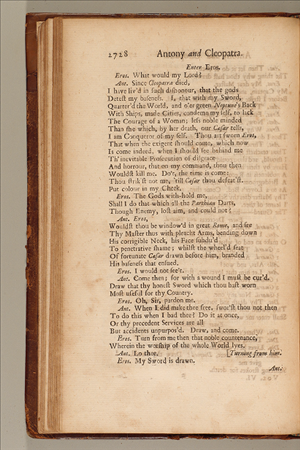 2728 Antony and Cleopatra.
Enter Eros.
Eros. What would my Lord?
Ant. Since Cleopatra died,
I have liv'd in such dishonour, that the gods
Detest my baseness. I, that with my Sword,
Quarter'd the World, and o'er green Neptune's Back
With Ships, made Cities, condemn my self, to lack
The Courage of a Woman; less noble minded
Than she which, by her death, our Cæsar tells,
I am Conqueror of my self. Thou art sworn Eros,
That when the exigent should come, which now
Is come indeed, when I should see behind me
Th' inevitable Prosecution of disgrace
And horrour, that on my command, thou then
Wouldst kill me. Do't, the time is come:
Thou strik'st not me, 'tis Cæsar thou defeat'st.
Put colour in thy Cheek.
Eros. The Gods with-hold me,
Shall I do that which all the Parthian Darts,
Though Enemy, lost aim, and could not?
Ant. Eros,
Wouldst thou be window'd in great Rome, and see
Thy Master thus with pleacht Arms, bending down
His corrigible Neck, his Face subdu'd
To penetrative shame; whilst the wheel'd seat
Of fortunate Cæsar drawn before him, branded
His baseness that ensued.
Eros. I would not see't.
Ant. Come then; for with a wound I must be cur'd.
Draw that thy honest Sword which thou hast worn
Most useful for thy Country.
Eros. Oh, Sir, pardon me.
Ant. When I did make thee free, swor'st thou not then
To do this when I bad thee? Do it at once,
Or thy precedent Services are all
But accidents unpurpos'd. Draw, and come.
Eros. Turn from me then that noble countenance,
Wherein the worship of the whole World lyes.
Ant. Lo thee. [Turning from him.
Eros. My Sword is drawn.
Ant.